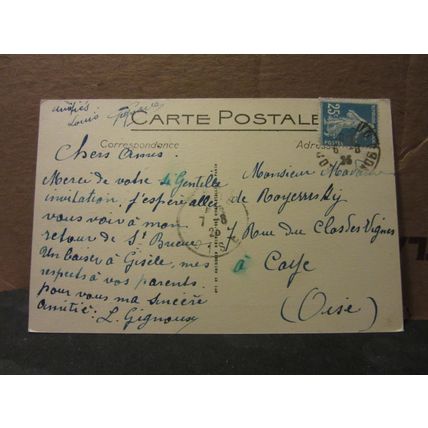 amitiés
Louis
CARTE POSTALE
Correspondance
Adresse
25
Chers Amis.
Merci de votre si Gentille
invitation, j'espère aller
vous voir à mon
retour de St Brieuc
Un baiser à Gisèle, mes
respects à vos parents.
pour vous ma sincère
amitié: L. Gignoux
Monsieur
de
7 Rue du Clos des Vignes
à Coye
(Oise)